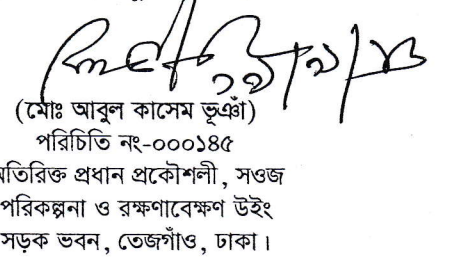 (মোঃ আবুল কাসেম ভূঞাঁ)
পরিচিতি নং-০০০১৪৫
প্রধান প্রকৌশলী, সওজ
পরিকল্পনা ও রক্ষণাবেক্ষণ উইং
সড়ক ভবন, তেজগাঁও, ঢাকা।